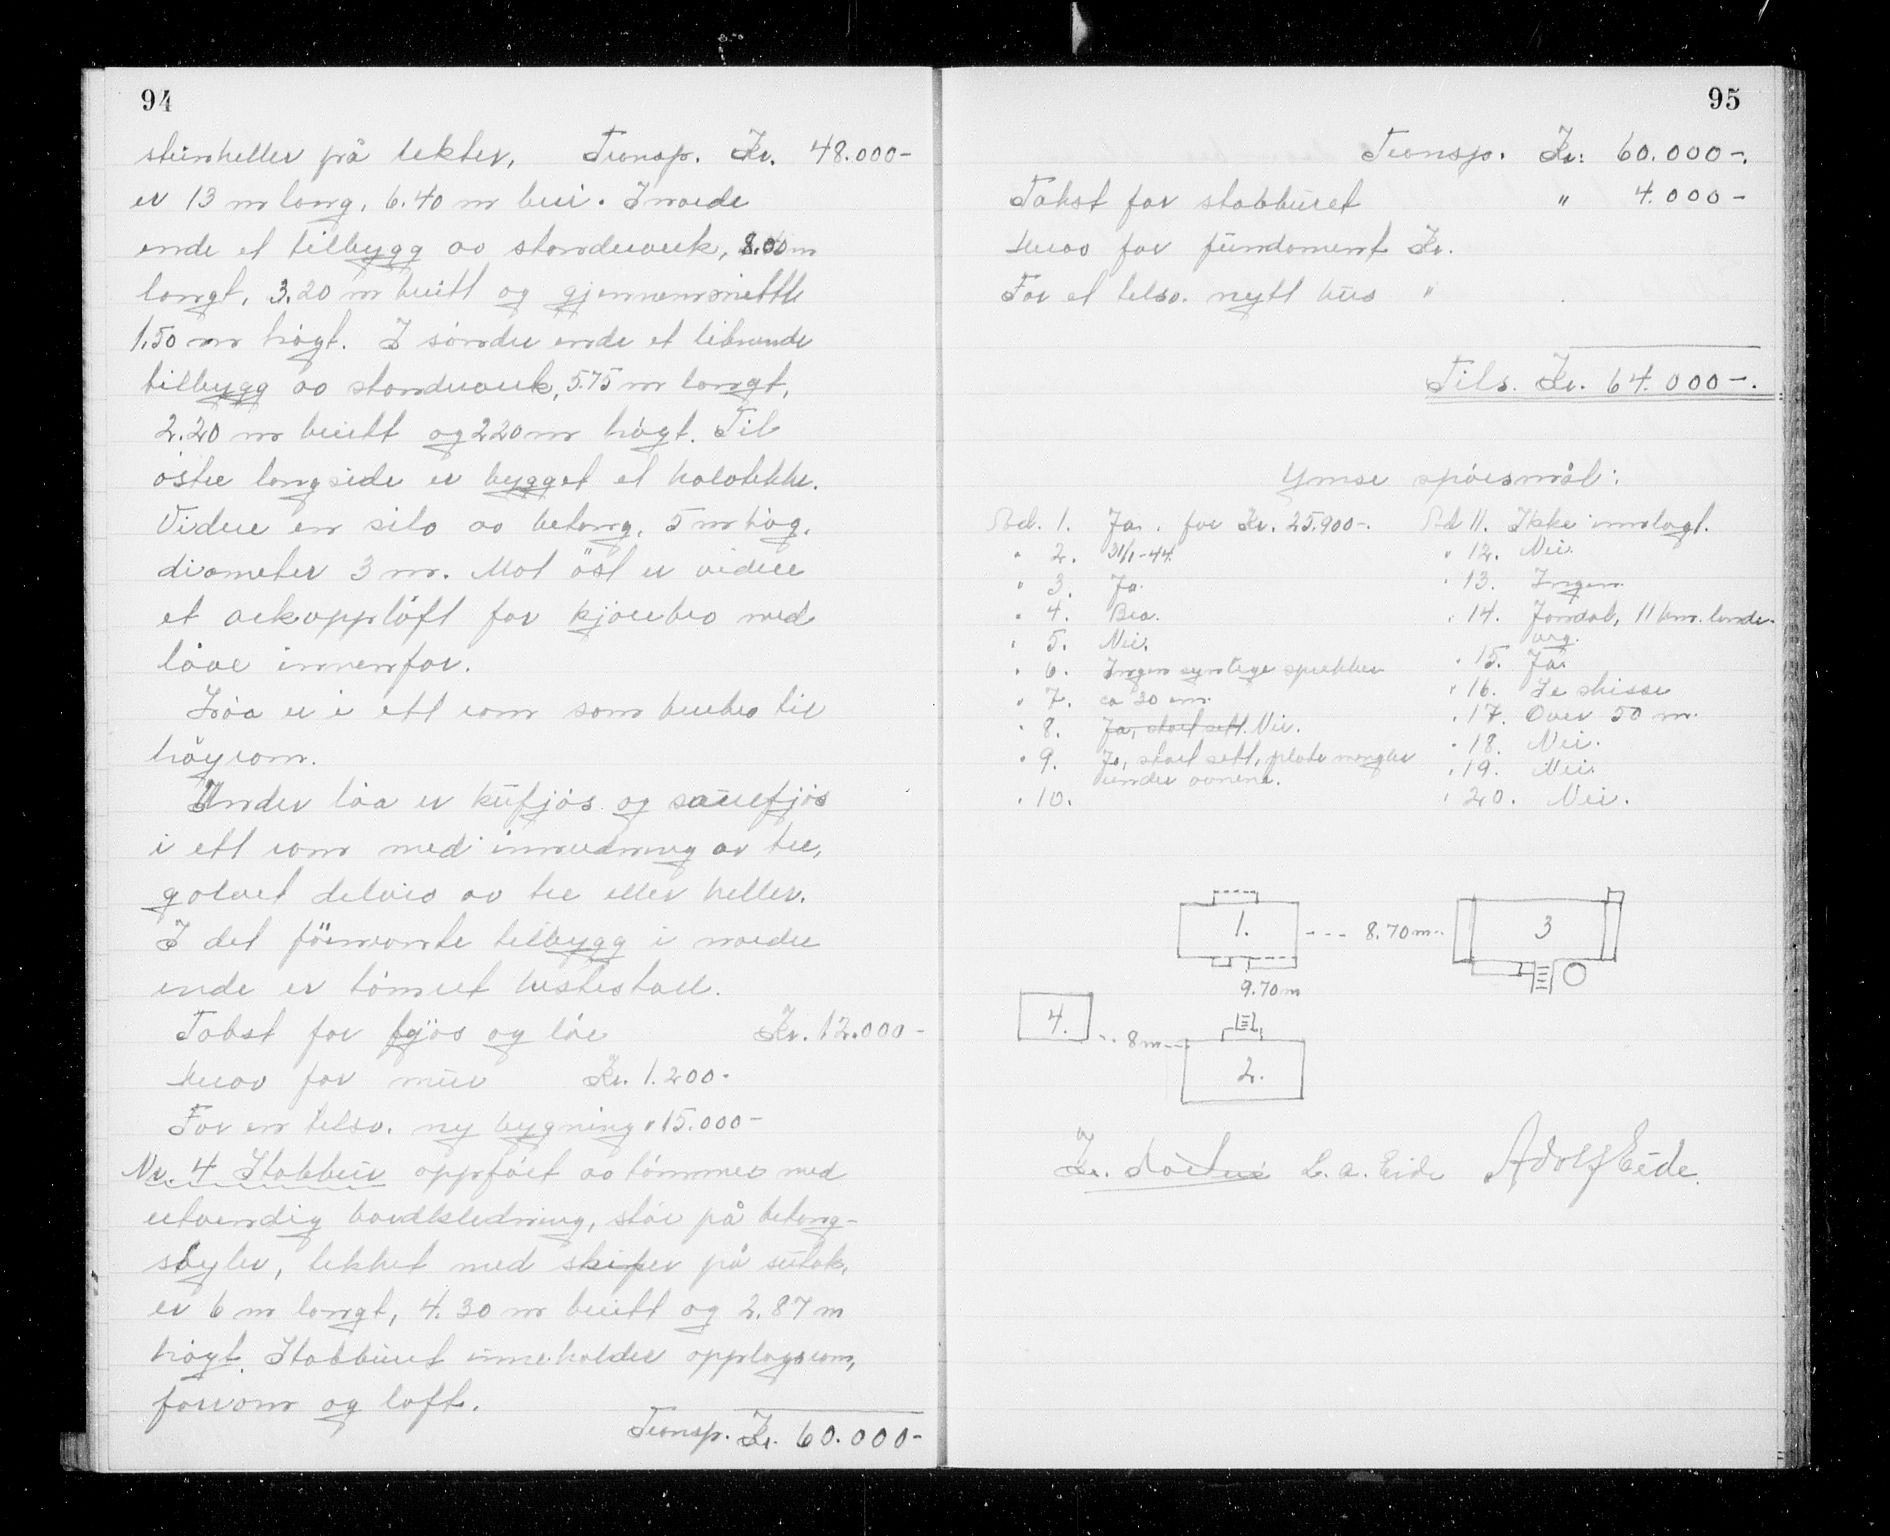 94
steinheller på lekter, Transp. Kr. 48.000-
er 13 m lang, 6.40 m brei. I nordre
ende et tilbygg av standerverk, 8.00 m
langt, 3.20 m breitt og gjennomsnittli
1.50 m høgt. I søndre ende et liknende
tilbygg av standerverk, 5.75 m langt,
2.20 m breitt og 220 m høgt. Til
östre langside er bygget et halvtekke.
Videre en silo av betong, 5 m høg,
diameter 3 m. Mot öst er videre
et arkoppløft for kjørebro med
låve innenfor.
Löa er i ett rom som brebro til
høyrom.
Under löa er kufjös og sauefjös
i ett rom med innredning av tre,
golvet delvis av tre eller heller.
I det förnevnte tilbygg i nordre
ende er tömret hestestall.
Takst for fjös og löe Kr. 12.000-
Herav for mur Kr. 1.200-
For en tilsv. ny bygning " 15.000-
Nr. 4 Stabbur oppført av tømmer med
utvendig bordkledning, står på betong-
søyler, tekket med skifer på sutak,
er 6 m langt, 4.30 m breitt og 2.87 m
högt. Stabburet inneholder opplagsrom,
forrom og loft.
Transp. Kr. 60.000-
95
Transp. Kr. 60.000-.
Takst for stabburet " 4.000-
Herav for fundament Kr.
For et tilsv. nytt hus "
Tils. Kr. 64.000-.
Ymse spørsmål:
Ad. 1. Ja. for Kr. 25.900-.
" 2. 31/1-44.
" 3. Ja.
" 4. Bra.
" 5. Nei.
" 6. Ingen synlige sprekker
" 7. ca 30 cm.
" 8. Ja, stort sett. Nei.
" 9. Ja, stort sett, plate mangler
under ovnene.
" 10.
Ad 11. Ikke innlagt.
" 12. Nei.
" 13. Ingen.
" 14. Jondal, 11 km. lande-
veg.
" 15. Ja.
" 16. Se skisse
" 17. Over 50 m.
" 18. Nei.
" 19. Nei.
" 20. Nei.
1. --- 8.70 m-- 3
9.70 m
4. -- 8 m --
2.
L. A. Eide Adolf Eide.